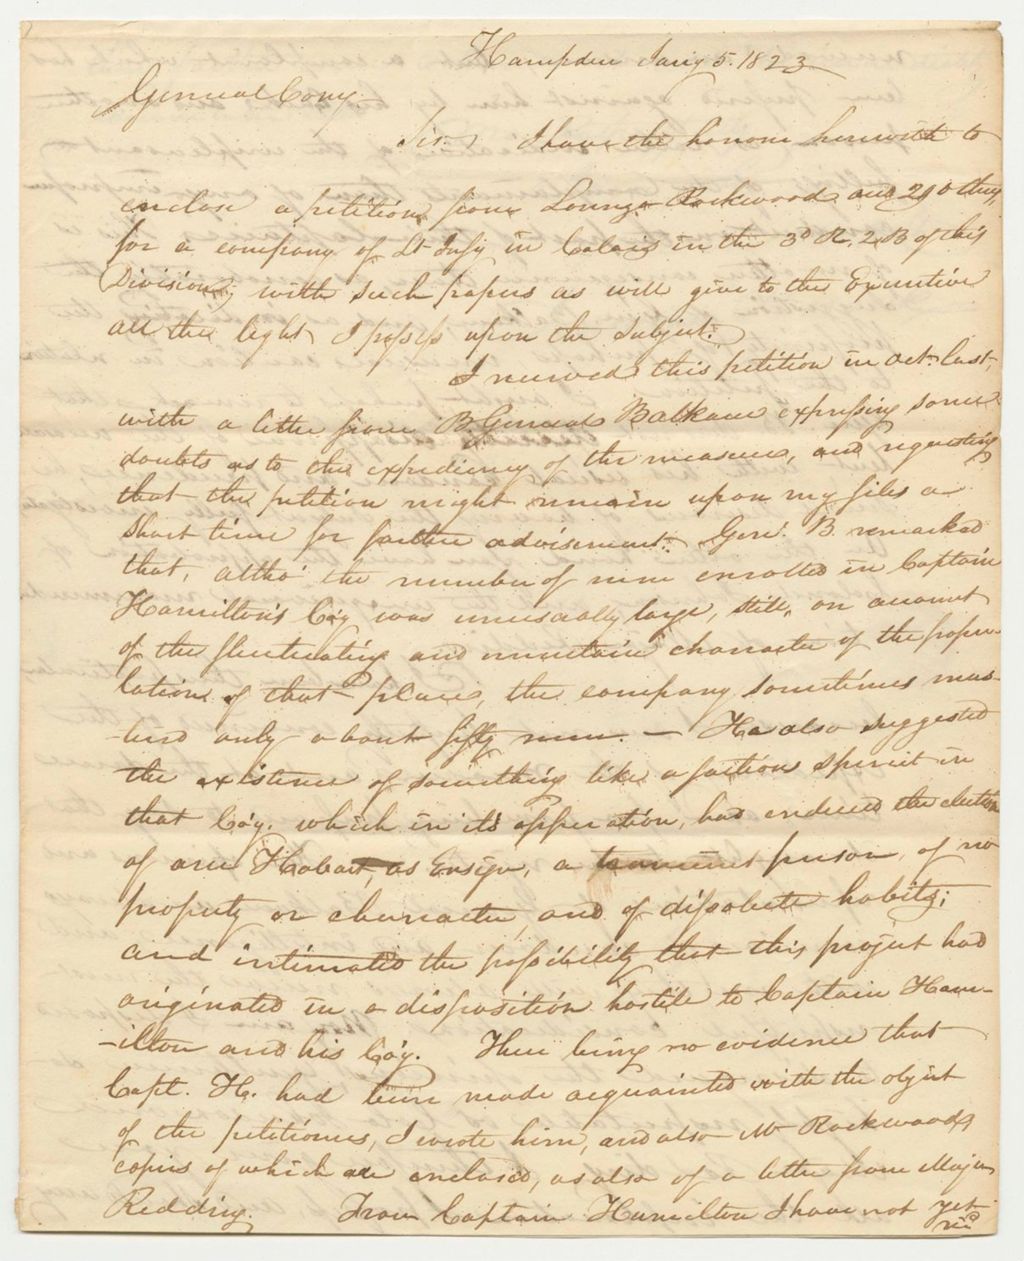 Hampden Jany 5. 1823
General Cony
Sir. I have the honour herewith to
enclose a petition from Lorenzo Rockwood and 29 others,
for a company of Lt Infy in Calais in the 3d R. 2 B of this
Division, with such papers as will give to the Executive
all the light I possess upon the subject.
I received this petition in Oct. last,
with a letter from B General Balkam expressing some
doubts as to the expediency of the measure, and requesting
that the petition might remain upon my files a
short time for farther advisement. Genl. B. remarked
that, altho' the number of men enrolled in Captain
Hamilton's Co'y was unusually large, still, on account
of the fluctuating and uncertain character of the popu-
lation of that place, the company sometimes mus-
-tered only about fifty men. — He also suggested
the existence of something like a factious spirit in
that Co'y. which in it's opperation, had endured the election
of one Hobart, as Ensign, a transient person, of no
property or character, and of dissolute habits;
and intimated the possibility that this project had
originated in a disposition hostile to Captain Ham-
-ilton and his Co'y. There being no evidence that
Capt. H. had been made acquainted with the object
of the petitioners, I wrote him, and also Mr Rockwood,
copies of which are enclosed, as also of a letter from Major
Redding. From Captain Hamilton I have not yet
recd